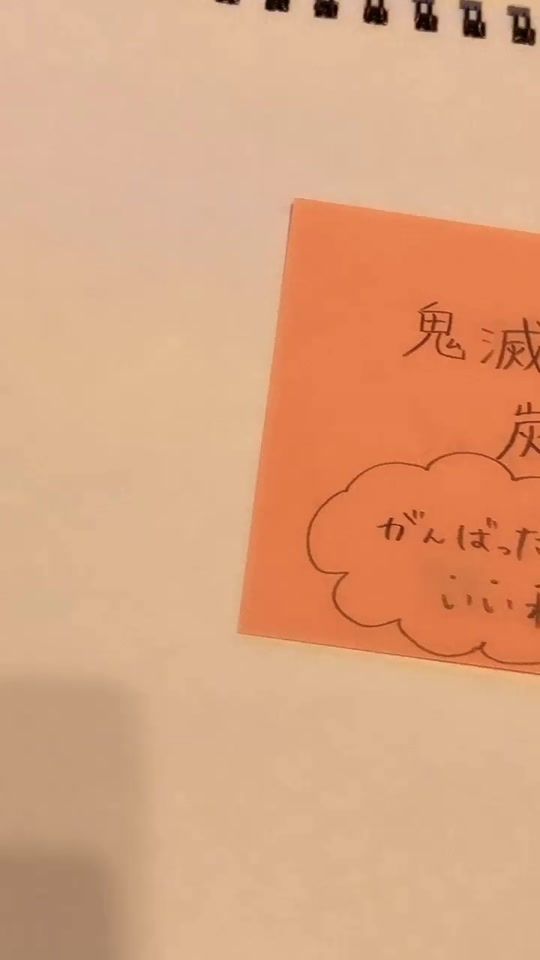 鬼滅
炭
がんばった
いいね